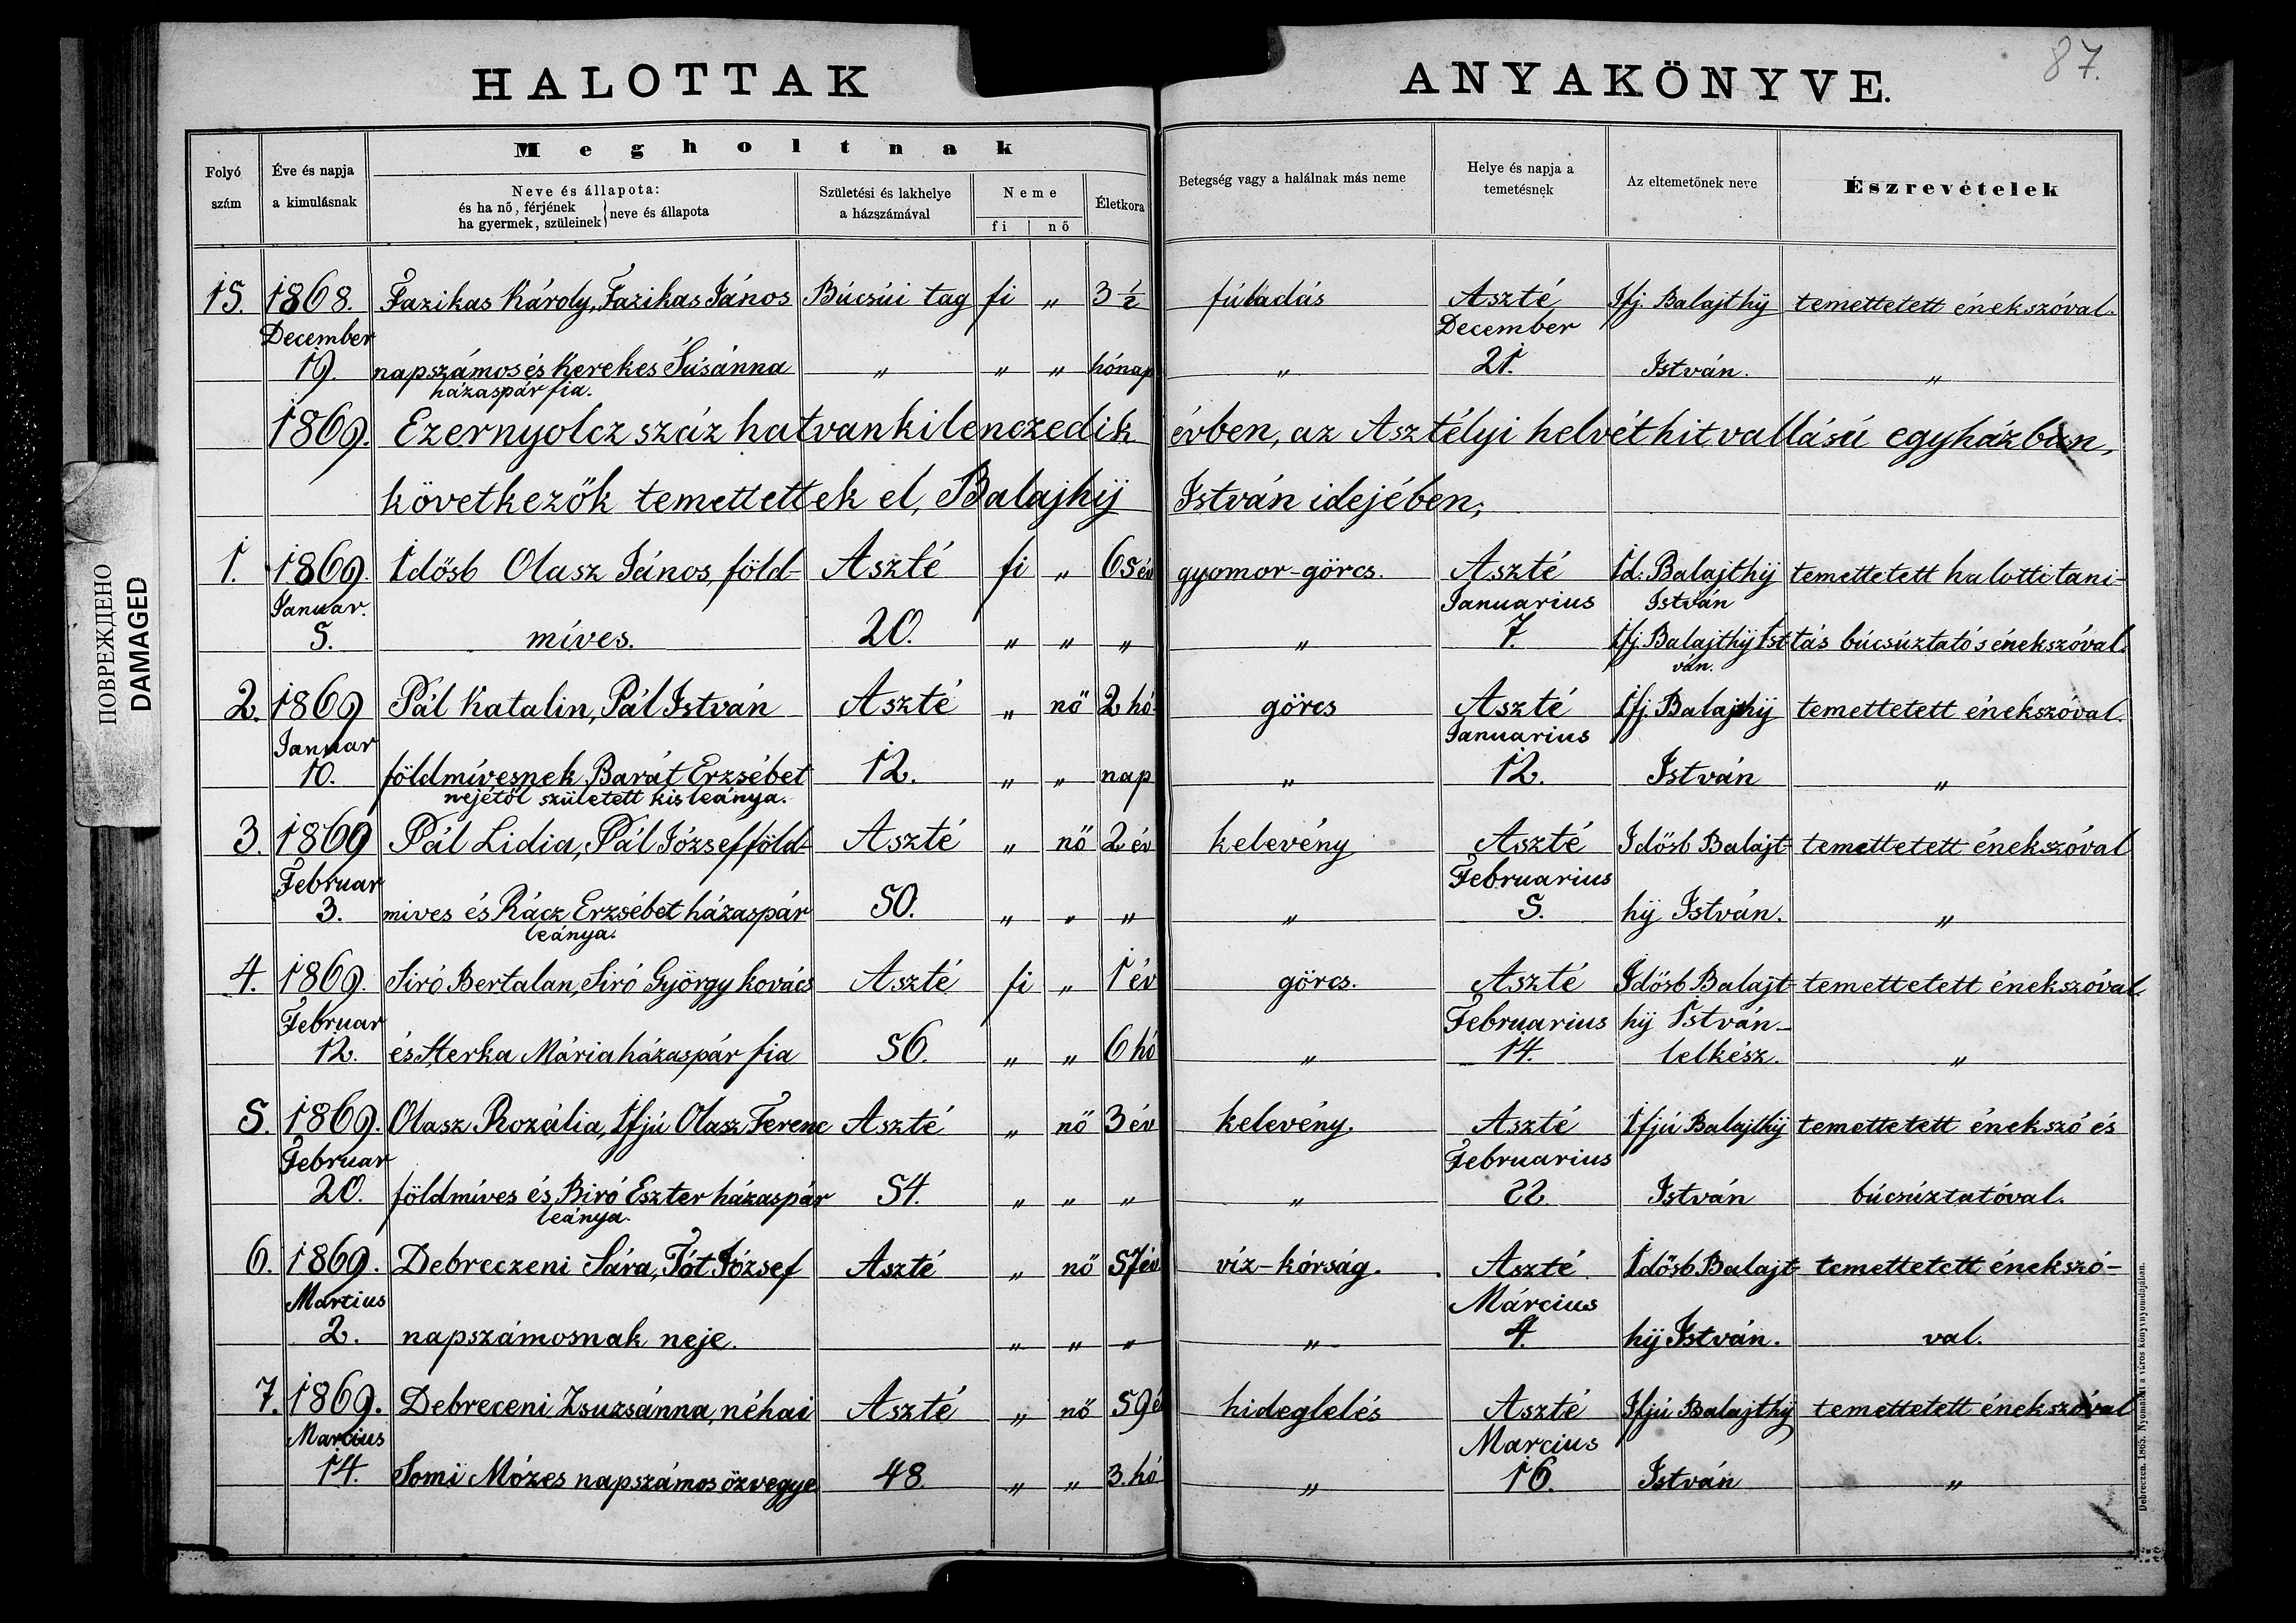 87.
HALOTTAK ANYAKÖNYVE.
Megholtnak
Folyó szám
Éve és napja a kimulásnak
Neve és állapota:
és ha nő, férjének
ha gyermek, szüleinek} neve és állapota
Születési és lakhelye a házszámával
Neme
fi nő
Életkora
Betegség vagy a halálnak más neme
Helye és napja a temetésnek
Az eltemetőnek neve
Észrevételek
15. 1868. Fazikas Károly, Fazikas János Búcsúi tag fi „ 3 ½ fúladás Aszté Ifj. Balajthÿ temettetett énekszóval.
December December
19. napszámos és Kerekes Súsánna „ „ „ hónap „ 21. István. „
házaspár fia.
1869. Ezernyolcz száz hatvankilenczedik évben, az Asztélyi helvét hitvallású egyházban,
következők temettettek el, Balajhÿ István idejében;
1. 1869. Idősb Olasz János, föld- Aszté fi „ 65 év gyomor-görcs. Aszté Id. Balajthÿ temettetett halotti tani-
Januar. Januarius István
5. míves. 20. „ „ „ „ 7. Ifj. Balajthÿ Ist tás búcsúztató s énekszóval.
ván.
2. 1869 Pál Katalin, Pál István Aszté „ nő 2 hó- görcs Aszté Ifj. Balajhÿ temettetett énekszóval.
Januar Januarius
10. földmívesnek Barát Erzsébet 12. „ „ nap „ 12. István „
nejétől született kis leánya.
3. 1869 Pál Lidia, Pál József föld- Aszté „ nő 2 év kelevény Aszté Idősb Balajt- temettetett énekszóval
Februar Februarius
3. mives és Rácz Erzsébet házaspár 50. „ „ „ „ 5. hÿ István. „
leánya.
4. 1869. Siró Bertalan, Siró György kovács Aszté fi „ 1 év görcs. Aszté Idősb Balajt- temettetett énekszóval.
Februar Februarius hÿ István-
12. és Sterka Mária házaspár fia 56. „ „ 6 hó „ 14. lelkész. „
5. 1869. Olasz Rozália, Ifjú Olasz Ferenc Aszté „ nő 3 év kelevény. Aszté Ifjú Balajthÿ temettetett énekszó és
Februar Februarius
20. földmíves és Biró Eszter házaspár 54. „ „ „ „ 22. István búcsúztatóval.
leánya.
6. 1869. Debreczeni Sára, Tót József Aszté „ nő 57 év víz-kórság. Aszté Idősb Balajt- temettetett énekszó-
Martius Március
2. napszámosnak neje. „ „ „ „ 4. hÿ István. val.
7. 1869. Debreceni Zsuzsánna, néhai Aszté „ nő 59 é hideglelés Aszté Ifjú Balajthÿ temettetett énekszóval
Marcius Marcius
14. Somi Mózes napszámos özvegye 48. „ „ 3. hó „ 16. István „
Debreczen. 1865. Nyomatott a város könyvnyomdájában.
ПОВРЕЖДЕНО
DAMAGED